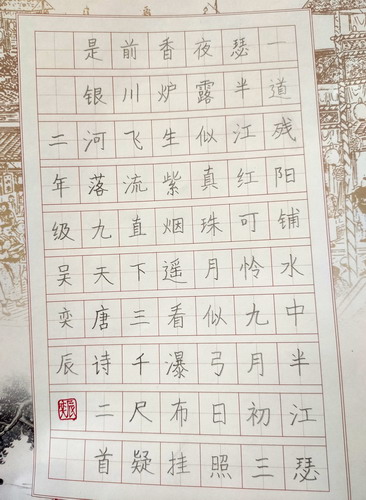 一道残阳铺水中半江瑟
瑟半江红可怜九月初三
夜露似真珠月似弓日照
香炉生紫烟遥看瀑布挂
前川飞流直下三千尺疑
是银河落九天唐诗二首
二年级吴奕辰